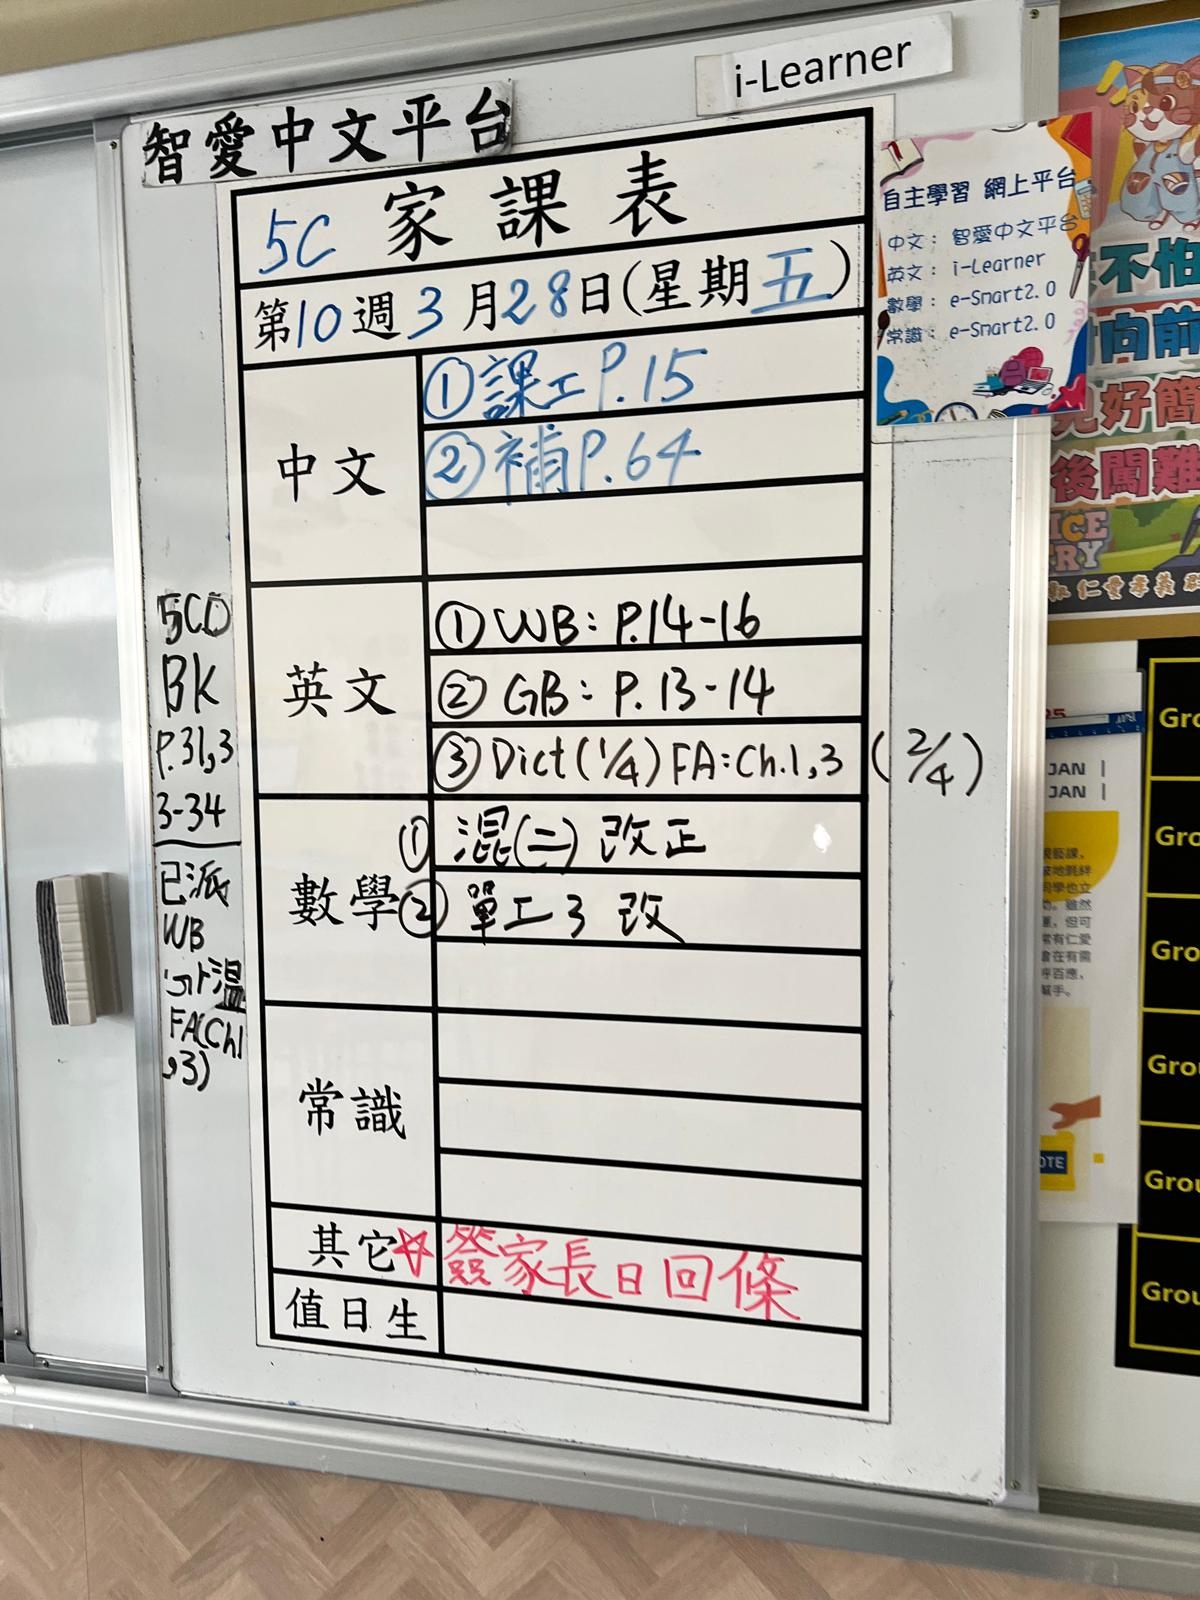 智愛中文平台
i-Learner
5C 家課表
第10週3月28日(星期五)
中文
①課工P.15
②補P.64
英文
①WB: P.14-16
②GB: P.13-14
③Dict(1/4) FA:Ch.1,3 (2/4)
數學
① 混(二) 改正
② 單工3 改
常識
其它☆發家長日回條
值日生
5CD
BK
P.31,3
3-34
已派
WB
FA(Ch1
,3)
自主學習 網上平台
中文: 智愛中文平台
英文: i-Learner
數學: e-Smart2.0
常識: e-Smart2.0
不怕
向前
好簡
後闖難
仁愛孝義
JAN
JAN
Gro
Gro
Gro
Gro
Grou
Grou